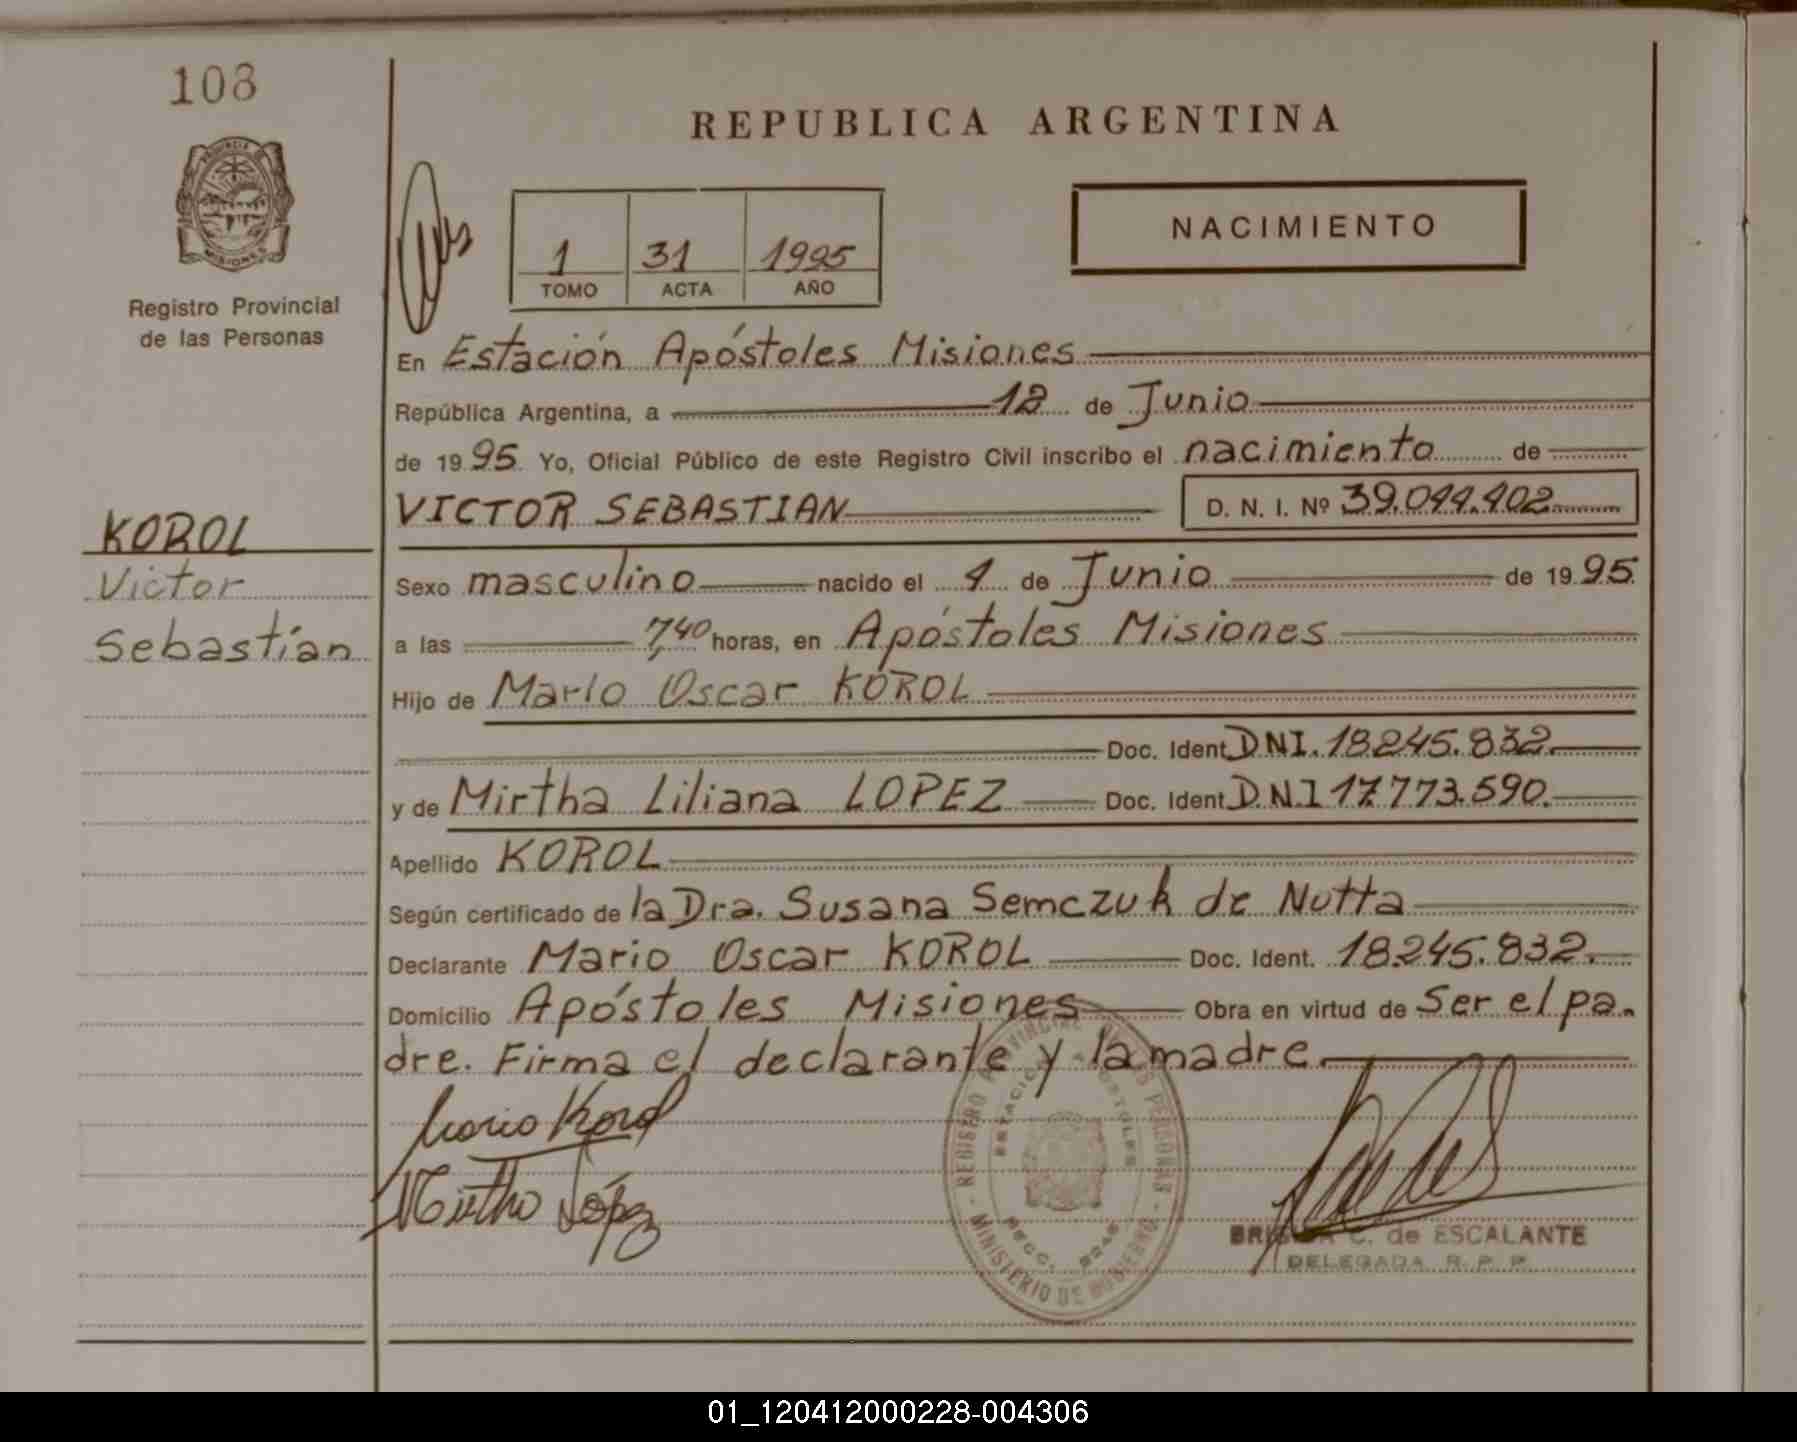 108
REPUBLICA ARGENTINA
PROVINCIA DE
MISIONES
Registro Provincial
de las Personas
NACIMIENTO
1 31 1995
TOMO ACTA AÑO
En Estación Apóstoles Misiones
República Argentina, a 12 de Junio
de 1995. Yo, Oficial Público de este Registro Civil inscribo el nacimiento de
VICTOR SEBASTIAN D. N. I. Nº 39.044.402
KOROL
Victor
Sebastían
Sexo masculino nacido el 4 de Junio de 1995
a las 7,40 horas, en Apóstoles Misiones
Hijo de Mario Oscar KOROL
Doc. Ident. DNI. 18.245.832.
y de Mirtha Liliana LOPEZ Doc. Ident. D.N.I 17.773.590.
Apellido KOROL
Según certificado de la Dra. Susana Semczuk de Notta
Declarante Mario Oscar KOROL Doc. Ident. 18.245.832.
Domicilio Apóstoles Misiones Obra en virtud de Ser el pa.
dre. Firma el declarante y la madre.
Mario Korol
Mirtha López
REGISTRO PROVINCIAL DE LAS PERSONAS
ESTACION APOSTOLES
SECC.
MINISTERIO DE GOBIERNO
C. de ESCALANTE
DELEGADA R. P. P.
01_120412000228-004306